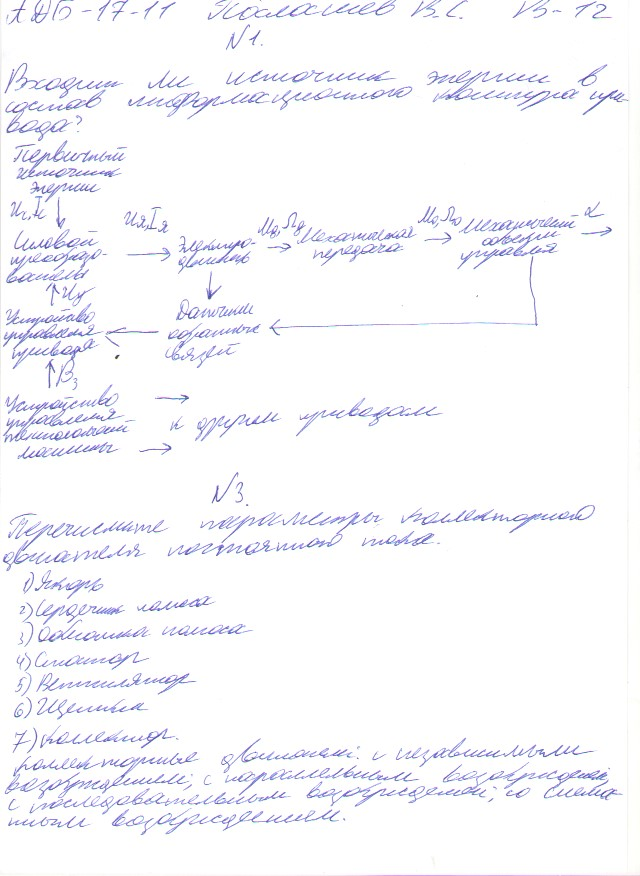 АДБ-17-11 Колошев В.С. В-12
№1.
Входит ли источник энергии в
состав информационного контура при-
вода?
Первичный
источник
энергии
Uc, Ic
Uя, Iя
Mд, Ωд
Mо, Ωо
α
Силовой
преобразо-
ватель
Электро-
двигатель
Механическая
передача
Механический
объект
управля
Uу
Устройство
управления
привода
Датчики
обратных
связей
В₃
Устройство
управления
технологической
машины
к другим приводам
№3.
Перечислите параметры коллекторного
двигателя постоянного тока.
1) Якорь
2) Сердечник полюса
3) Обмотка полюса
4) Статор
5) Вентилятор
6) Щётки
7) Коллектор.
Коллекторные двигатели: с независимым
возбуждением; с параллельным возбуждением;
с последовательным возбуждением; со смешан-
ным возбуждением.